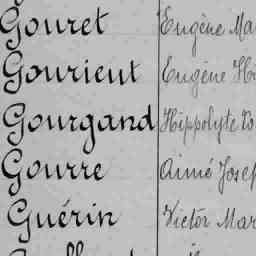 Gouret Eugène Ma
Gourient Eugène
Gourgand Hippolyte
Gourre Aimé Josep
Guérin Victor Mar